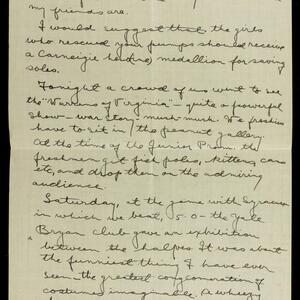 my friends are.
I would suggest that the girls
who rescued your pumps should receive
a Carneigie hero medallion for saving
soles.
Tonight a crowd of us went to see
the "Warrens of Virginia" - quite a powerful
show - war story - much-much. We freshies
have to sit in the peanut gallery.
At the time of the Junior Prom. the
freshmen get fish poles, kittens, cans
etc, and drop them on the admiring
audience.
Saturday, at the game with Syracuse
in which we beat, 5-0 - the Yale
Bryan Club gave an exhibition
between the halves. It was about
the funniest thing I have ever
seen - the greatest conglomeration of
costumes imaginable. A whizzy